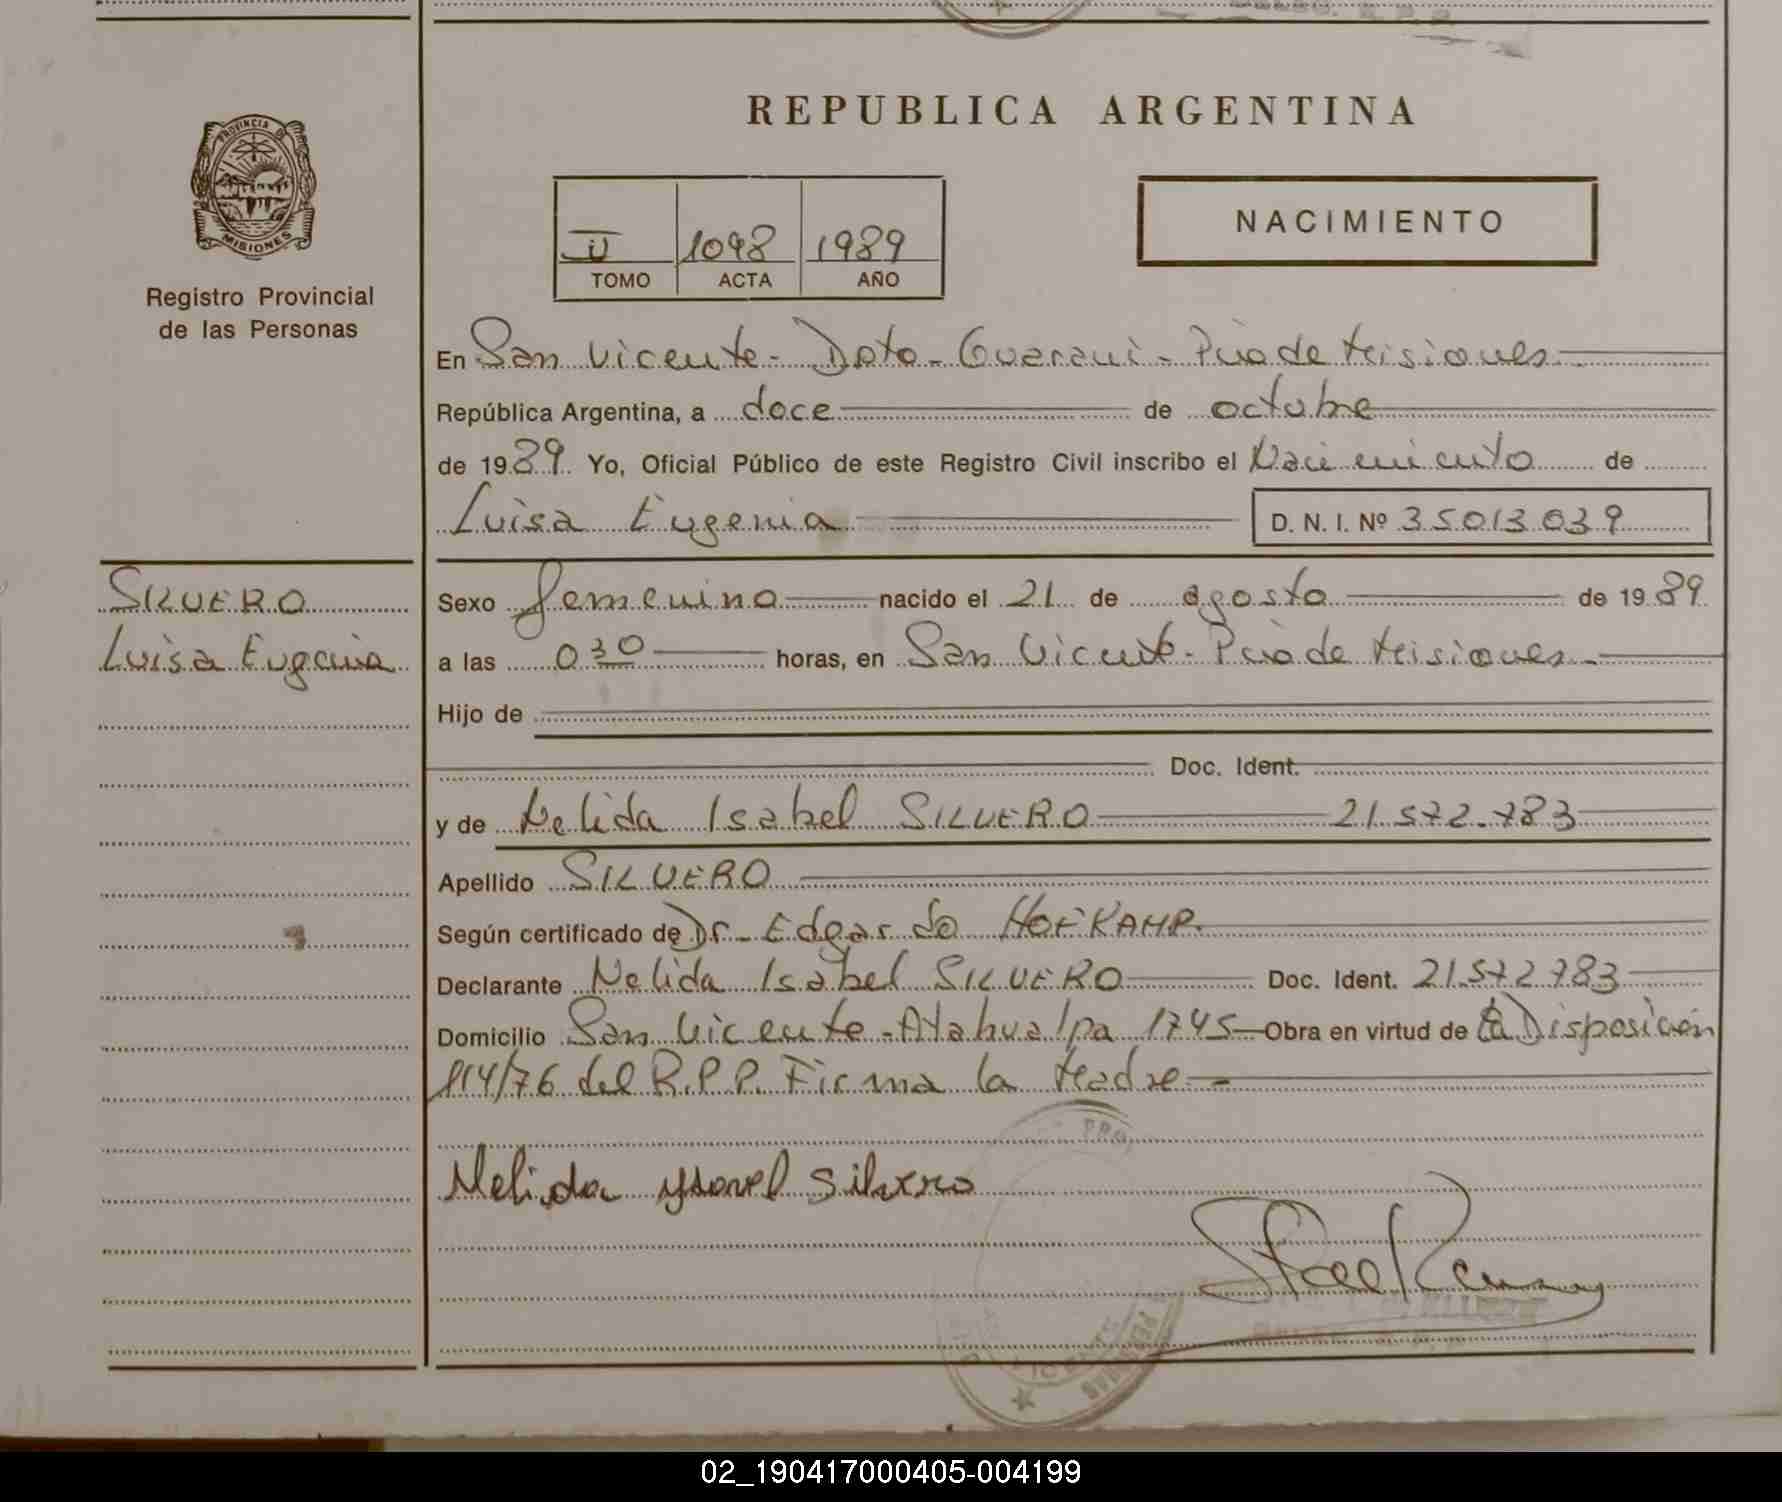 REPUBLICA ARGENTINA
PROVINCIA DE
MISIONES
Registro Provincial
de las Personas
II 1098 1989
TOMO ACTA AÑO
NACIMIENTO
En San Vicente - Dpto - Guarani - Pcia de Misiones
República Argentina, a doce de octubre
de 1989. Yo, Oficial Público de este Registro Civil inscribo el Nacimiento de
Luisa Eugenia D. N. I. Nº 35013039
SILVERO
Luisa Eugenia
Sexo femenino nacido el 21 de agosto de 1989
a las 030 horas, en San Vicente - Pcia de Misiones
Hijo de
Doc. Ident.
y de Nelida Isabel SILVERO 21.572.783
Apellido SILVERO
Según certificado de Dr. Edgardo HOFKAMP.
Declarante Nelida Isabel SILVERO Doc. Ident. 21.572783
Domicilio San Vicente - Atahualpa 1745 Obra en virtud de la Disposición
814/76 del R.P.P. Firma la Madre -
Nelida ysavel Silvero
02_190417000405-004199